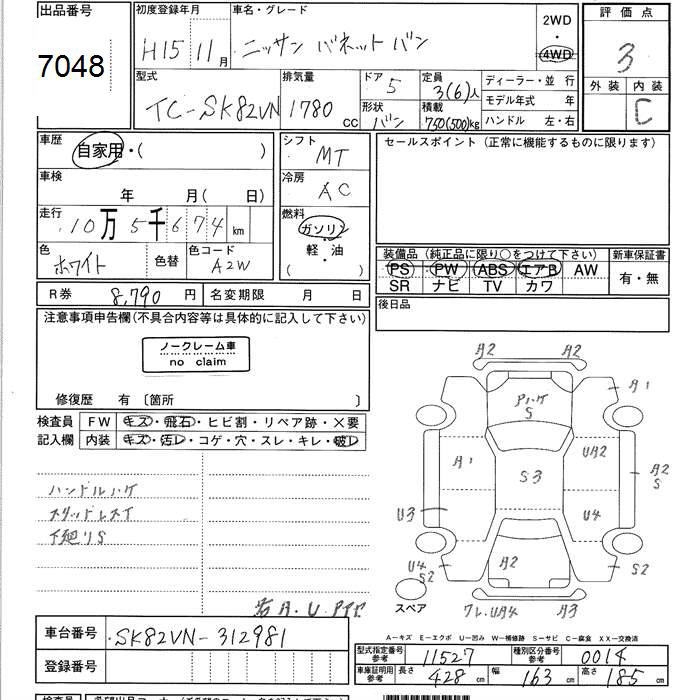 出品番号
7048
初度登録年月
H15 11月
車名・グレード
ニッサン バネットバン
2WD
4WD
評価点
3
外装 内装
C
型式
TC-SK82VN
排気量
1780 cc
ドア
5
定員
3(6)人
形状
バン
積載
750(500)kg
ディーラー・並 行
モデル年式 年
ハンドル 左・右
車歴
自家用・( )
車検
年 月( 日)
走行
10万5千674 km
色
ホワイト
色替
色コード
A2W
シフト
MT
冷房
AC
燃料
ガソリン
軽・油
( )
セールスポイント (正常に機能するものに限ります)
装備品 (純正品に限り○をつけて下さい)
PS PW ABS エアB AW
SR ナビ TV カワ
新車保証書
有・無
後日品
R券 8,790 円
名変期限 月 日
注意事項申告欄(不具合内容等は具体的に記入して下さい)
ノークレーム車
no claim
修復歴 有 〔箇所 〕
検査員
記入欄
FW キズ・飛石・ヒビ割・リペア跡・×要
内装 キズ・汚レ・コゲ・穴・スレ・キレ・破レ
ハンドルハゲ
スタッドレスT
下廻りS
A2 A2
ハゲ
S
A1
A1
UA2
S3
A2
S
U3
U4
A2
U4
S2
S2
スペア
UA4
A3
A-キズ E-エクボ U-凹み W-補修跡 S-サビ C-腐食 XX-交換済
車台番号
SK82VN-312981
登録番号
型式指定番号
参考
11527
種別区分番号
参考
0014
車庫証明用
参考
長さ 428 cm
幅 163 cm
高さ 185 cm